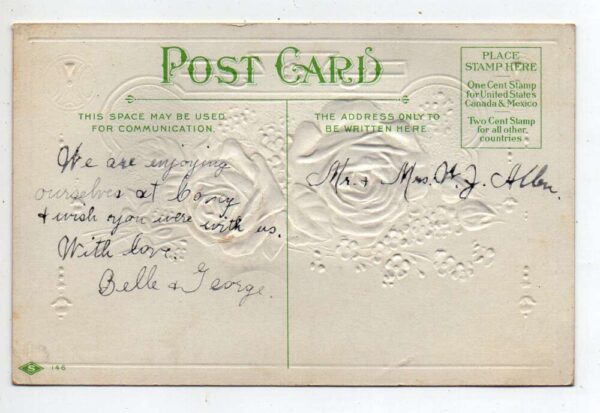 POST CARD
THIS SPACE MAY BE USED
FOR COMMUNICATION.
THE ADDRESS ONLY TO
BE WRITTEN HERE.
PLACE
STAMP HERE
One Cent Stamp
for United States
Canada & Mexico
Two Cent Stamp
for all other
countries
We are enjoying
ourselves at
& wish you were with us.
With love.
Belle & George.
Mr. & Mrs. W. J. Allen.
S 146